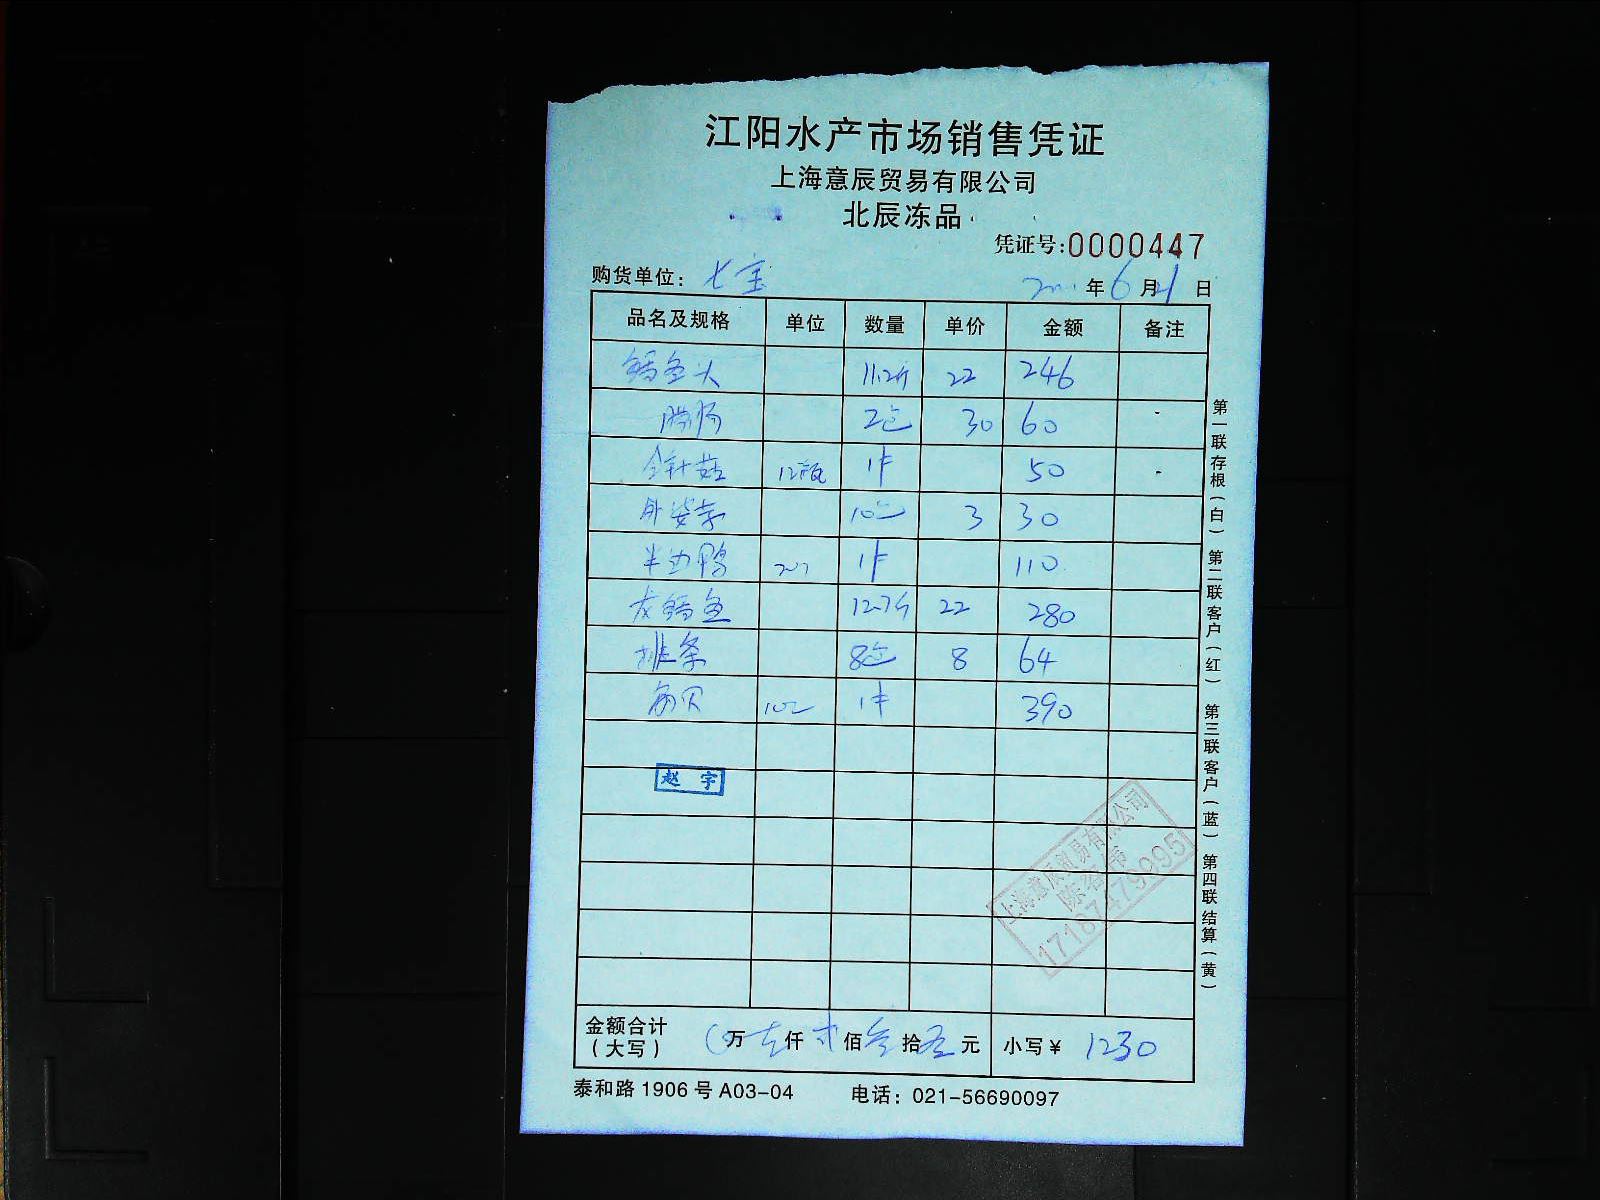 江阳水产市场销售凭证
上海意辰贸易有限公司
北辰冻品
凭证号:0000447
购货单位: 七宝 年6月21日
品名及规格 单位 数量 单价 金额 备注
鳕鱼头 11.2斤 22 246
2包 30 60
金针菇 12瓶 1件 50
外婆 10包 3 30
半边鸭 1件 110
龙鳕鱼 12.7斤 22 280
排条 8包 8 64
贝 10包 1件 390
赵宇
上海意辰贸易有限公司
17187479995
金额合计(大写) 万 仟 佰叁拾 元 小写¥ 1230
泰和路1906号A03-04 电话: 021-56690097
第一联存根(白) 第二联客户(红) 第三联客户(蓝) 第四联结算(黄)